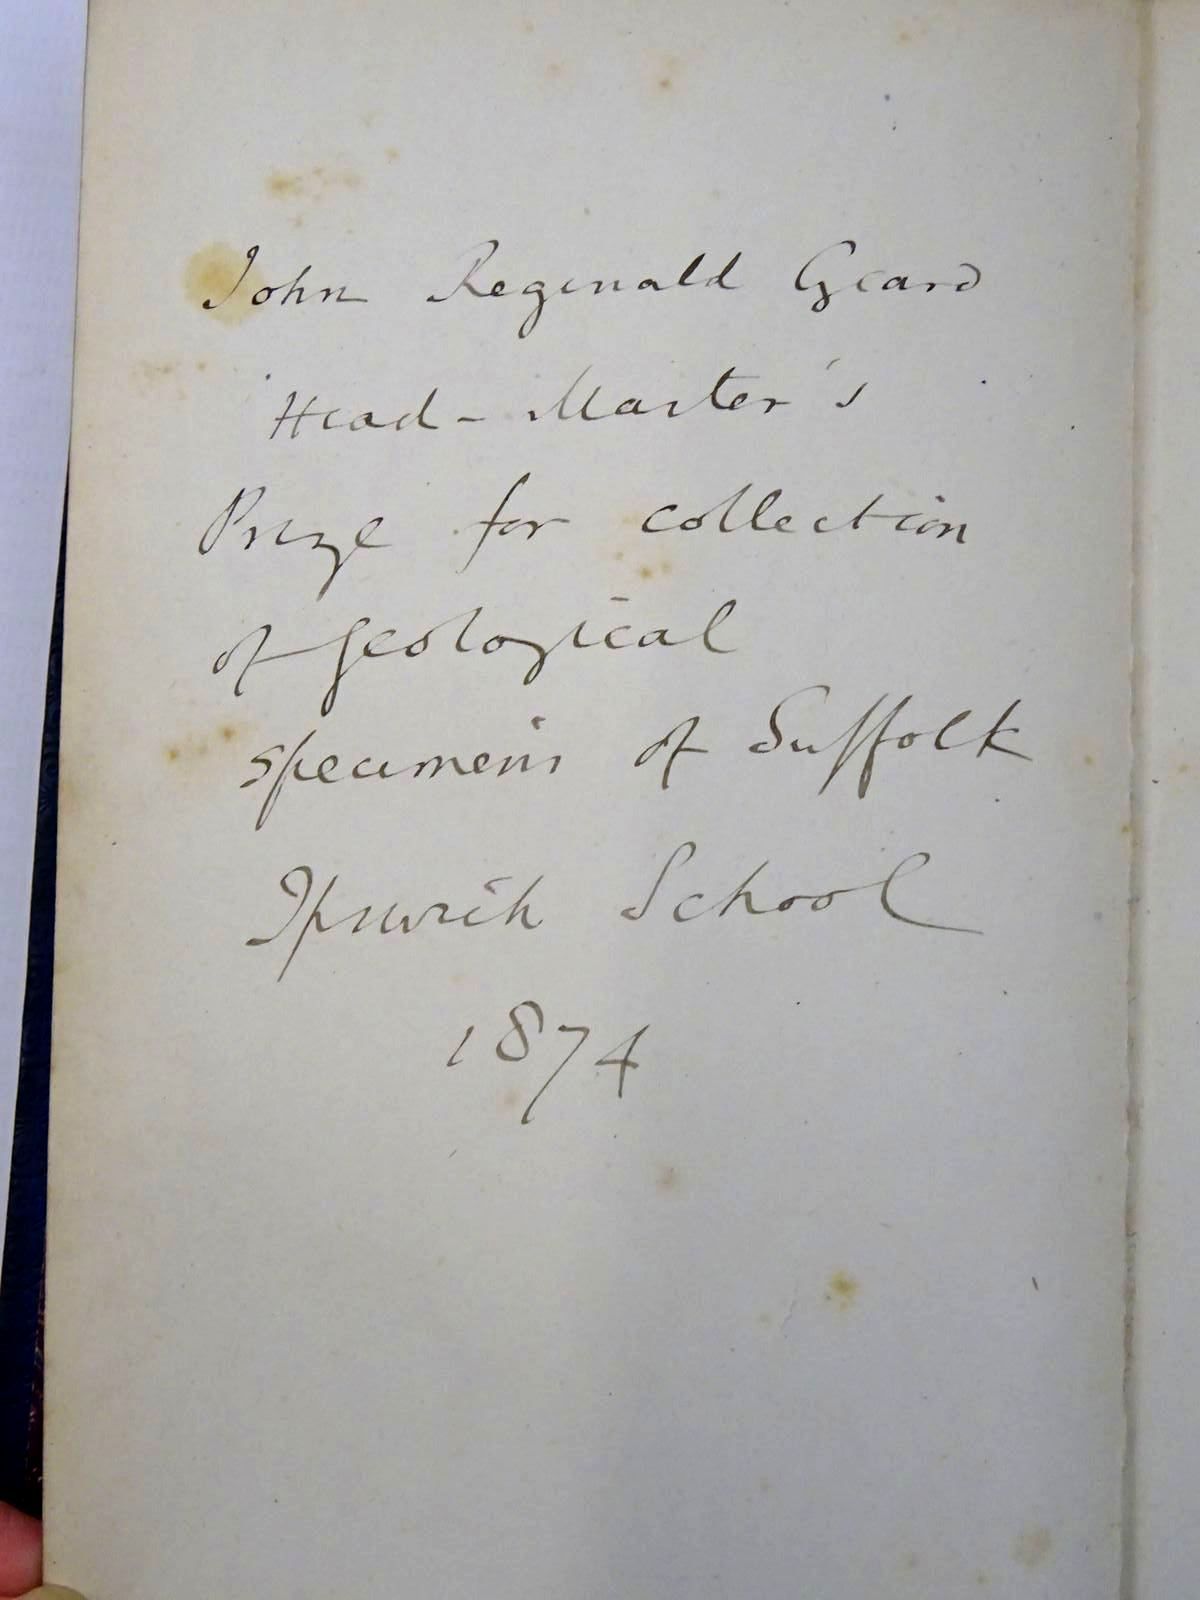 John Reginald Geard
Head-Master's
Prize for collection
of geological
specimens of Suffolk
Ipswich School
1874